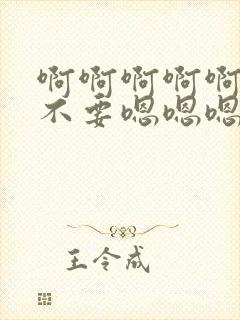 啊啊啊啊啊
不要嗯嗯嗯
王令成